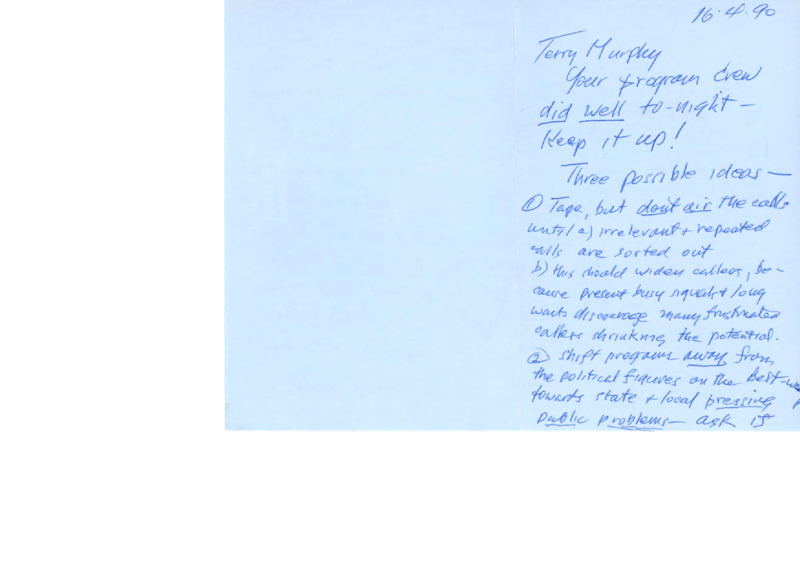 16.4.90
Terry Murphy
Your program crew
did well to-night —
Keep it up!
Three possible ideas —
① Tape, but don't air the calls
until a) irrelevant + repeated
calls are sorted out
b) this should widen callers, be-
cause present busy signals + long
waits discourage many frustrated
callers shrinking the potential.
② Shift program away from
the political figures on the Best-
towards state + local pressing
public problems — ask if